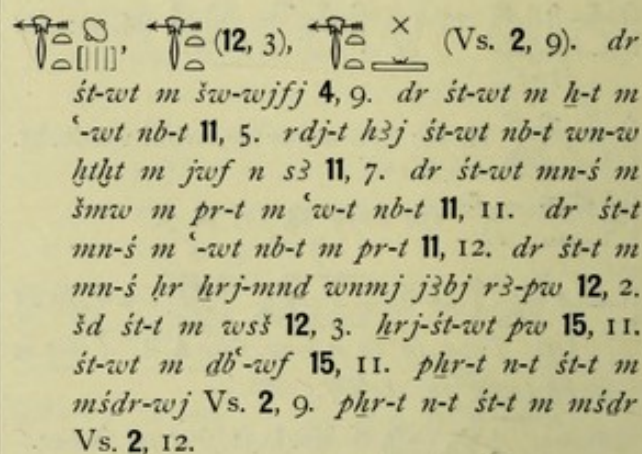 , (12, 3), (Vs. 2, 9). dr
śt-wt m šw-wjfj 4, 9. dr śt-wt m ẖ-t m
ʿ-wt nb-t 11, 5. rdj-t hꜣj śt-wt nb-t wn-w
ḫtḫt m jwf n sꜣ 11, 7. dr śt-wt mn-ś m
šmw m pr-t m ʿw-t nb-t 11, 11. dr śt-t
mn-ś m ʿ-wt nb-t m pr-t 11, 12. dr śt-t m
mn-ś ḥr ẖrj-mnd wnmj jꜣbj rꜣ-pw 12, 2.
šd śt-t m wsš 12, 3. ẖrj-śt-wt pw 15, 11.
śt-wt m ḏbʿ-wf 15, 11. pẖr-t n-t śt-t m
mśḏr-wj Vs. 2, 9. pẖr-t n-t śt-t m mśḏr
Vs. 2, 12.